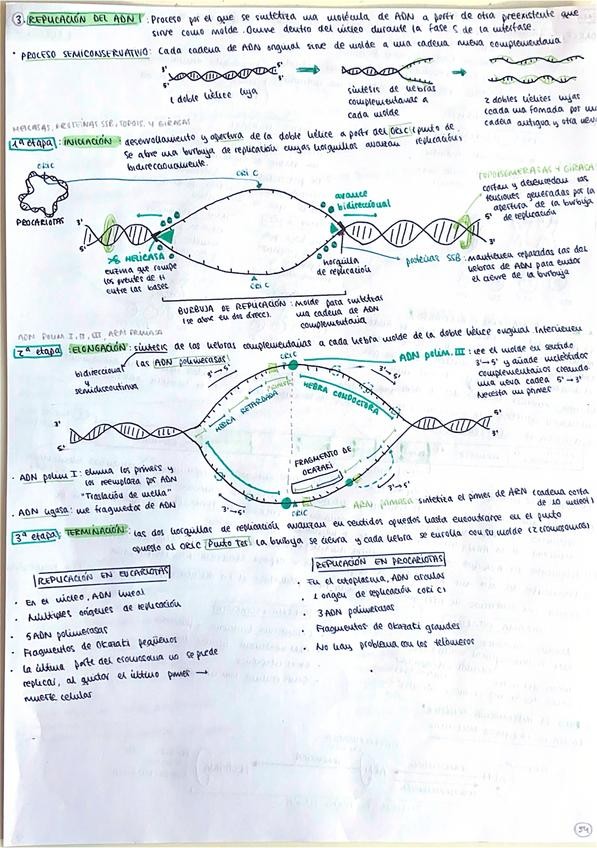 3. REPLICACIÓN DEL ADN : Proceso por el que se sintetiza una molécula de ADN a partir de otra preexistente que
sirve como molde. Ocurre dentro del núcleo durante la fase S de la interfase.
• PROCESO SEMICONSERVATIVO: Cada cadena de ADN original sirve de molde a una cadena nueva complementaria
3'
5'
5'
3'
1 doble hélice hija
síntesis de hebras
complementarias a
cada molde
2 dobles hélices hijas
(cada una formada por una
cadena antigua y otra
HELICASAS, PROTEÍNAS SSB, TOPOIS. Y GIRASAS
1ª etapa: INICIACIÓN: desenrollamiento y apertura de la doble hélice a partir del ORIC (punto de
replicación)
Se abre una burbuja de replicación cuyas horquillas avanzan
bidireccionalmente.
ORIC
PROCARIOTAS
ORI C
avance
bidireccional
TOPOISOMERASAS Y GIRASAS
cortan y desenredan las
tensiones generadas por la
apertura de la burbuja
de replicación
3'
5'
5'
3'
HELICASA
enzima que rompe
los puentes de H
entre las bases
ORI C
horquilla
de replicación
proteínas SSB: mantienen separadas las dos
hebras de ADN para evitar
el cierre de la burbuja
BURBUJA DE REPLICACIÓN: molde para sintetizar
(se abre en dos direcc). una cadena de ADN
complementaria
ADN POLIM I, II, III, ARN PRIMASA
2ª etapa: ELONGACIÓN: síntesis de las hebras complementarias a cada hebra molde de la doble hélice original. Intervienen
las ADN polimerasas
bidireccional
y
semidiscontinua
ORIC
ADN polim. III: lee el molde en sentido
3'→5' y añade nucleótidos
complementarios creando
una nueva cadena 5'→3'
Necesita un primer
5'→3'
3'→5'
PRIMER
HEBRA RETARDADA
HEBRA CONDUCTORA
3'
5'
5'
3'
FRAGMENTO DE
OKAZAKI
• ADN polim I: elimina los primers y
los reemplaza por ADN
"Traslación de mella"
• ADN ligasa: une fragmentos de ADN
3'→5'
3'→5'
ORIC
ARN primasa sintetiza el primer de ARN (cadena corta
de 10 nucleót)
3ª etapa: TERMINACIÓN: las dos horquillas de replicación avanzan en sentidos opuestos hasta encontrarse en el punto
opuesto al ORIC Punto Ter. La burbuja se cierra y cada hebra se enrolla con su molde (2 cromosomas)
REPLICACIÓN EN EUCARIOTAS
• En el núcleo, ADN lineal
• Múltiples orígenes de replicación
• 5 ADN polimerasas
• Fragmentos de Okazaki pequeños
• La última parte del cromosoma no se puede
replicar, al quitar el último primer →
muerte celular
REPLICACIÓN EN PROCARIOTAS
• En el citoplasma, ADN circular
• 1 origen de replicación (ORI C)
• 3 ADN polimerasas
• Fragmentos de Okazaki grandes
• No hay problema con los telómeros
54